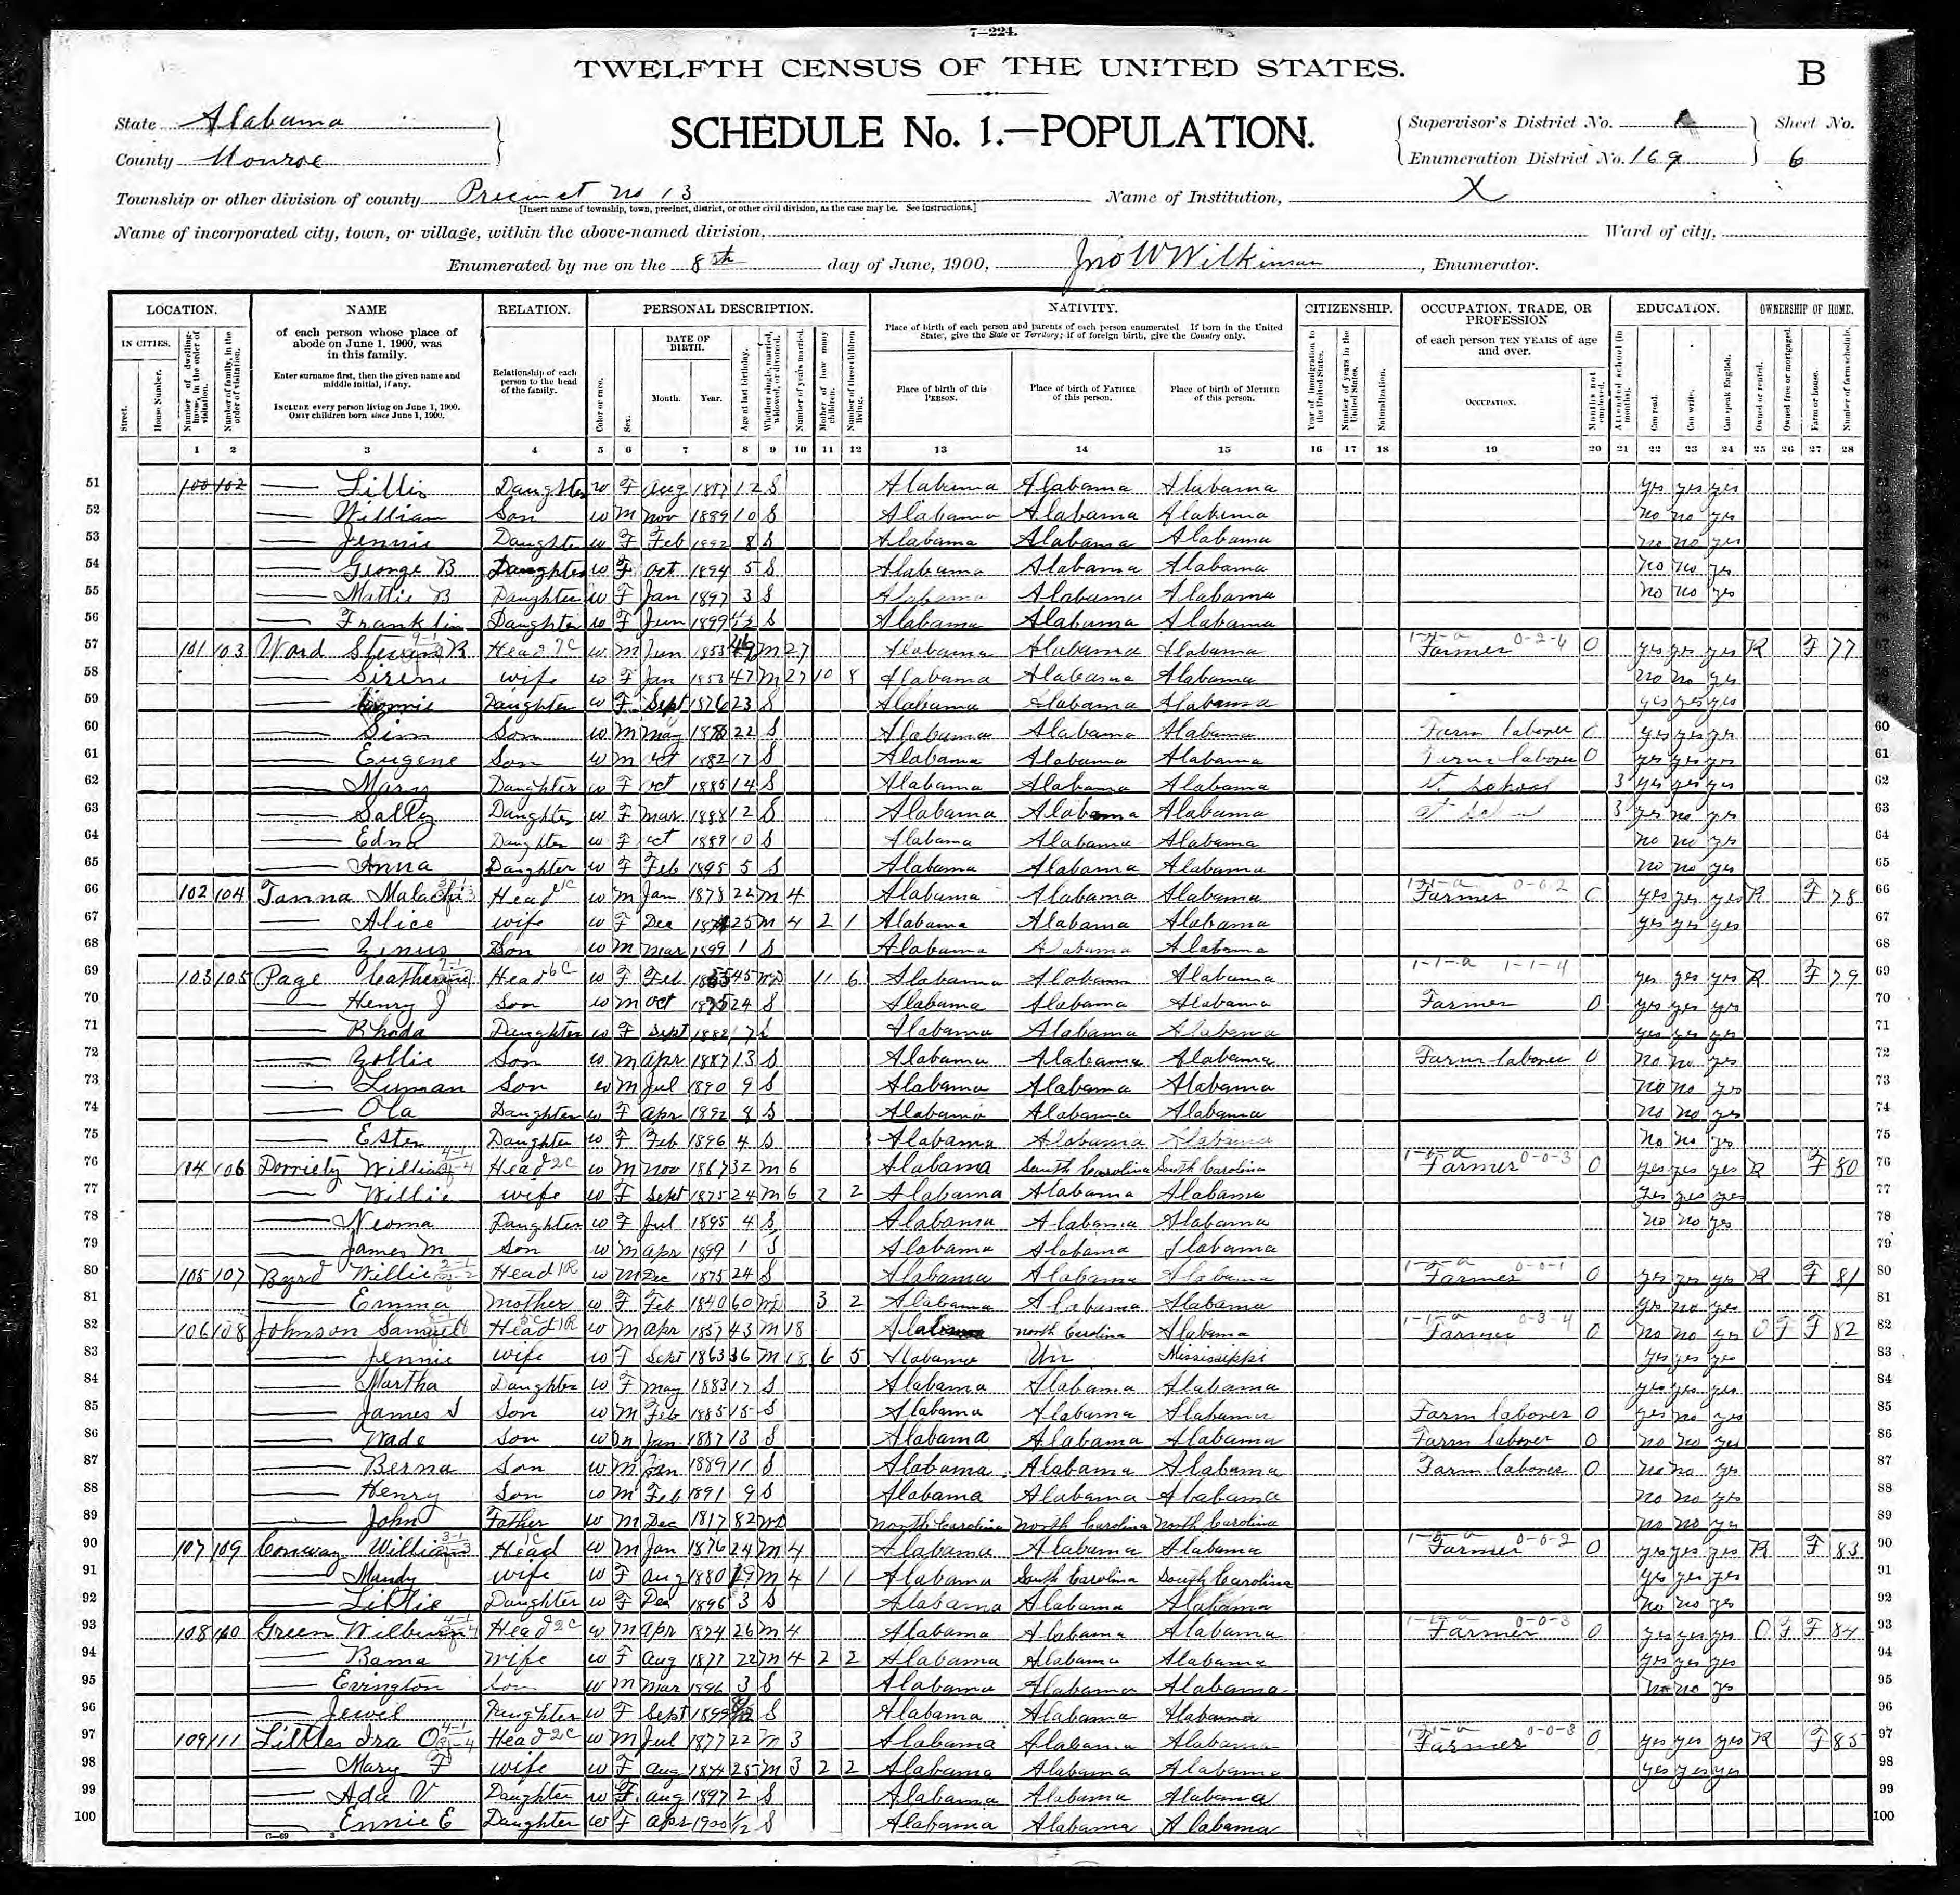 7—224.
TWELFTH CENSUS OF THE UNITED STATES.
B
State Alabama
County Monroe
SCHEDULE No. 1.—POPULATION.
Supervisor's District No.
Enumeration District No. 169
Sheet No.
6
Township or other division of county Precinct No 13
[Insert name of township, town, precinct, district, or other civil division, as the case may be. See instructions.]
Name of Institution, X
Name of incorporated city, town, or village, within the above-named division,
Ward of city,
Enumerated by me on the 8th day of June, 1900, Jno W Wilkinson, Enumerator.
LOCATION. NAME RELATION. PERSONAL DESCRIPTION. NATIVITY. CITIZENSHIP. OCCUPATION, TRADE, OR PROFESSION EDUCATION. OWNERSHIP OF HOME.
IN CITIES.
Street.
House Number.
Number of dwelling-house, in the order of visitation.
Number of family, in the order of visitation.
of each person whose place of abode on June 1, 1900, was in this family.
Enter surname first, then the given name and middle initial, if any.
INCLUDE every person living on June 1, 1900.
OMIT children born since June 1, 1900.
Relationship of each person to the head of the family.
Color or race.
Sex.
DATE OF BIRTH.
Month. Year.
Age at last birthday.
Whether single, married, widowed, or divorced.
Number of years married.
Mother of how many children.
Number of these children living.
Place of birth of each person and parents of each person enumerated. If born in the United States, give the State or Territory; if of foreign birth, give the Country only.
Place of birth of this PERSON.
Place of birth of FATHER of this person.
Place of birth of MOTHER of this person.
Year of immigration to the United States.
Number of years in the United States.
Naturalization.
of each person TEN YEARS of age and over.
OCCUPATION.
Months not employed.
Attended school (in months).
Can read.
Can write.
Can speak English.
Owned or rented.
Owned free or mortgaged.
Farm or house.
Number of farm schedule.
1 2 3 4 5 6 7 8 9 10 11 12 13 14 15 16 17 18 19 20 21 22 23 24 25 26 27 28
51 100 102 — Lillis Daughter W F Aug 1887 12 S Alabama Alabama Alabama yes yes yes
52 — William Son W M Nov 1889 10 S Alabama Alabama Alabama no no yes
53 — Jennie Daughter W F Feb 1892 8 S Alabama Alabama Alabama no no yes
54 — George B Daughter W F Oct 1894 5 S Alabama Alabama Alabama no no yes
55 — Mattie B Daughter W F Jan 1897 3 S Alabama Alabama Alabama no no yes
56 — Franklin Daughter W F Jun 1899 S Alabama Alabama Alabama
57 101 103 Ward R Head W M Jun 1853 M 27 Alabama Alabama Alabama Farmer 0-2-6 0 yes yes yes R F 77
58 — Sireni wife W F Jan 1853 47 M 27 10 8 Alabama Alabama Alabama no no yes
59 — Daughter W F Sept 1876 23 S Alabama Alabama Alabama yes yes yes
60 — Sim Son W M May 22 S Alabama Alabama Alabama Farm laborer yes yes yes
61 — Eugene Son W M Oct 1882 17 S Alabama Alabama Alabama Farm laborer 0 yes yes yes
62 — Mary Daughter W F Oct 1885 14 S Alabama Alabama Alabama at School 3 yes yes yes
63 — Sally Daughter W F Mar 1888 12 S Alabama Alabama Alabama at School 3 yes no yes
64 — Edna Daughter W F Oct 1889 10 S Alabama Alabama Alabama no no yes
65 — Anna Daughter W F Feb 1895 5 S Alabama Alabama Alabama no no yes
66 102 104 Tanna Malachi Head W M Jan 1878 22 M 4 Alabama Alabama Alabama Farmer 0-0-2 yes yes yes R F 78
67 — Alice wife W F Dec 1874 25 M 4 2 1 Alabama Alabama Alabama yes yes yes
68 — Zinus Son W M Mar 1899 1 S Alabama Alabama Alabama
69 103 105 Page Catherine Head W F Feb 1855 45 Wd 11 6 Alabama Alabama Alabama 1-1-a 1-1-4 yes yes yes R F 79
70 — Henry J Son W M Oct 1875 24 S Alabama Alabama Alabama Farmer 0 yes yes yes
71 — Rhoda Daughter W F Sept 1882 17 S Alabama Alabama Alabama yes yes yes
72 — Zollie Son W M Apr 1887 13 S Alabama Alabama Alabama Farm laborer 0 no no yes
73 — Luman Son W M Jul 1890 9 S Alabama Alabama Alabama no no yes
74 — Ola Daughter W F Apr 1892 8 S Alabama Alabama Alabama no no yes
75 — Ester Daughter W F Feb 1896 4 S Alabama Alabama Alabama no no yes
76 104 106 Dorriety William Head 2C W M Nov 1867 32 M 6 Alabama South Carolina South Carolina Farmer 0-0-3 0 yes yes yes R F 80
77 — Willie wife W F Sept 1875 24 M 6 2 2 Alabama Alabama Alabama yes yes yes
78 — Neoma Daughter W F Jul 1895 4 S Alabama Alabama Alabama no no yes
79 — James M Son W M Apr 1899 1 S Alabama Alabama Alabama
80 105 107 Byrd Willie Head 1R W M Dec 1875 24 S Alabama Alabama Alabama Farmer 0-0-1 0 yes yes yes R F 81
81 — Emma Mother W F Feb 1840 60 Wd 3 2 Alabama Alabama Alabama yes no yes
82 106 108 Johnson Samuel Head 1R W M Apr 1857 43 M 18 Alabama North Carolina Alabama 1-1-a 0-3-4 Farmer 0 no no yes O F F 82
83 — Jennie wife W F Sept 1863 36 M 18 6 5 Alabama Un Mississippi yes yes yes
84 — Martha Daughter W F May 1883 17 S Alabama Alabama Alabama yes yes yes
85 — James S Son W M Feb 1885 15 S Alabama Alabama Alabama Farm laborer 0 yes no yes
86 — Wade Son W M Jan 1887 13 S Alabama Alabama Alabama Farm laborer 0 no no yes
87 — Berna Son W M Jan 1889 11 S Alabama Alabama Alabama Farm laborer 0 no no yes
88 — Henry Son W M Feb 1891 9 S Alabama Alabama Alabama no no yes
89 — John Father W M Dec 1817 82 Wd North Carolina North Carolina North Carolina no no yes
90 107 109 Conway William Head W M Jan 1876 24 M 4 Alabama Alabama Alabama Farmer 0-0-2 0 yes yes yes R F 83
91 — Mandy wife W F Aug 1880 19 M 4 1 1 Alabama South Carolina South Carolina yes yes yes
92 — Littie Daughter W F Dec 1896 3 S Alabama Alabama Alabama no no yes
93 108 110 Green Wilburn Head 2C W M Apr 1874 26 M 4 Alabama Alabama Alabama Farmer 0-0-3 0 yes yes yes O F F 84
94 — Bama Wife W F Aug 1877 22 M 4 2 2 Alabama Alabama Alabama yes yes yes
95 — Evington Son W M Mar 1896 3 S Alabama Alabama Alabama no no yes
96 — Jewel Daughter W F Sept 1899 S Alabama Alabama Alabama
97 109 111 Littles Ira O Head 2C W M Jul 1877 22 M 3 Alabama Alabama Alabama Farmer 0-0-3 0 yes yes yes R F 85
98 — Mary F wife W F Aug 1874 25 M 3 2 2 Alabama Alabama Alabama yes yes yes
99 — Ada V Daughter W F Aug 1897 2 S Alabama Alabama Alabama
100 — Ennie E Daughter W F Apr 1900 1/12 S Alabama Alabama Alabama
C—69 3